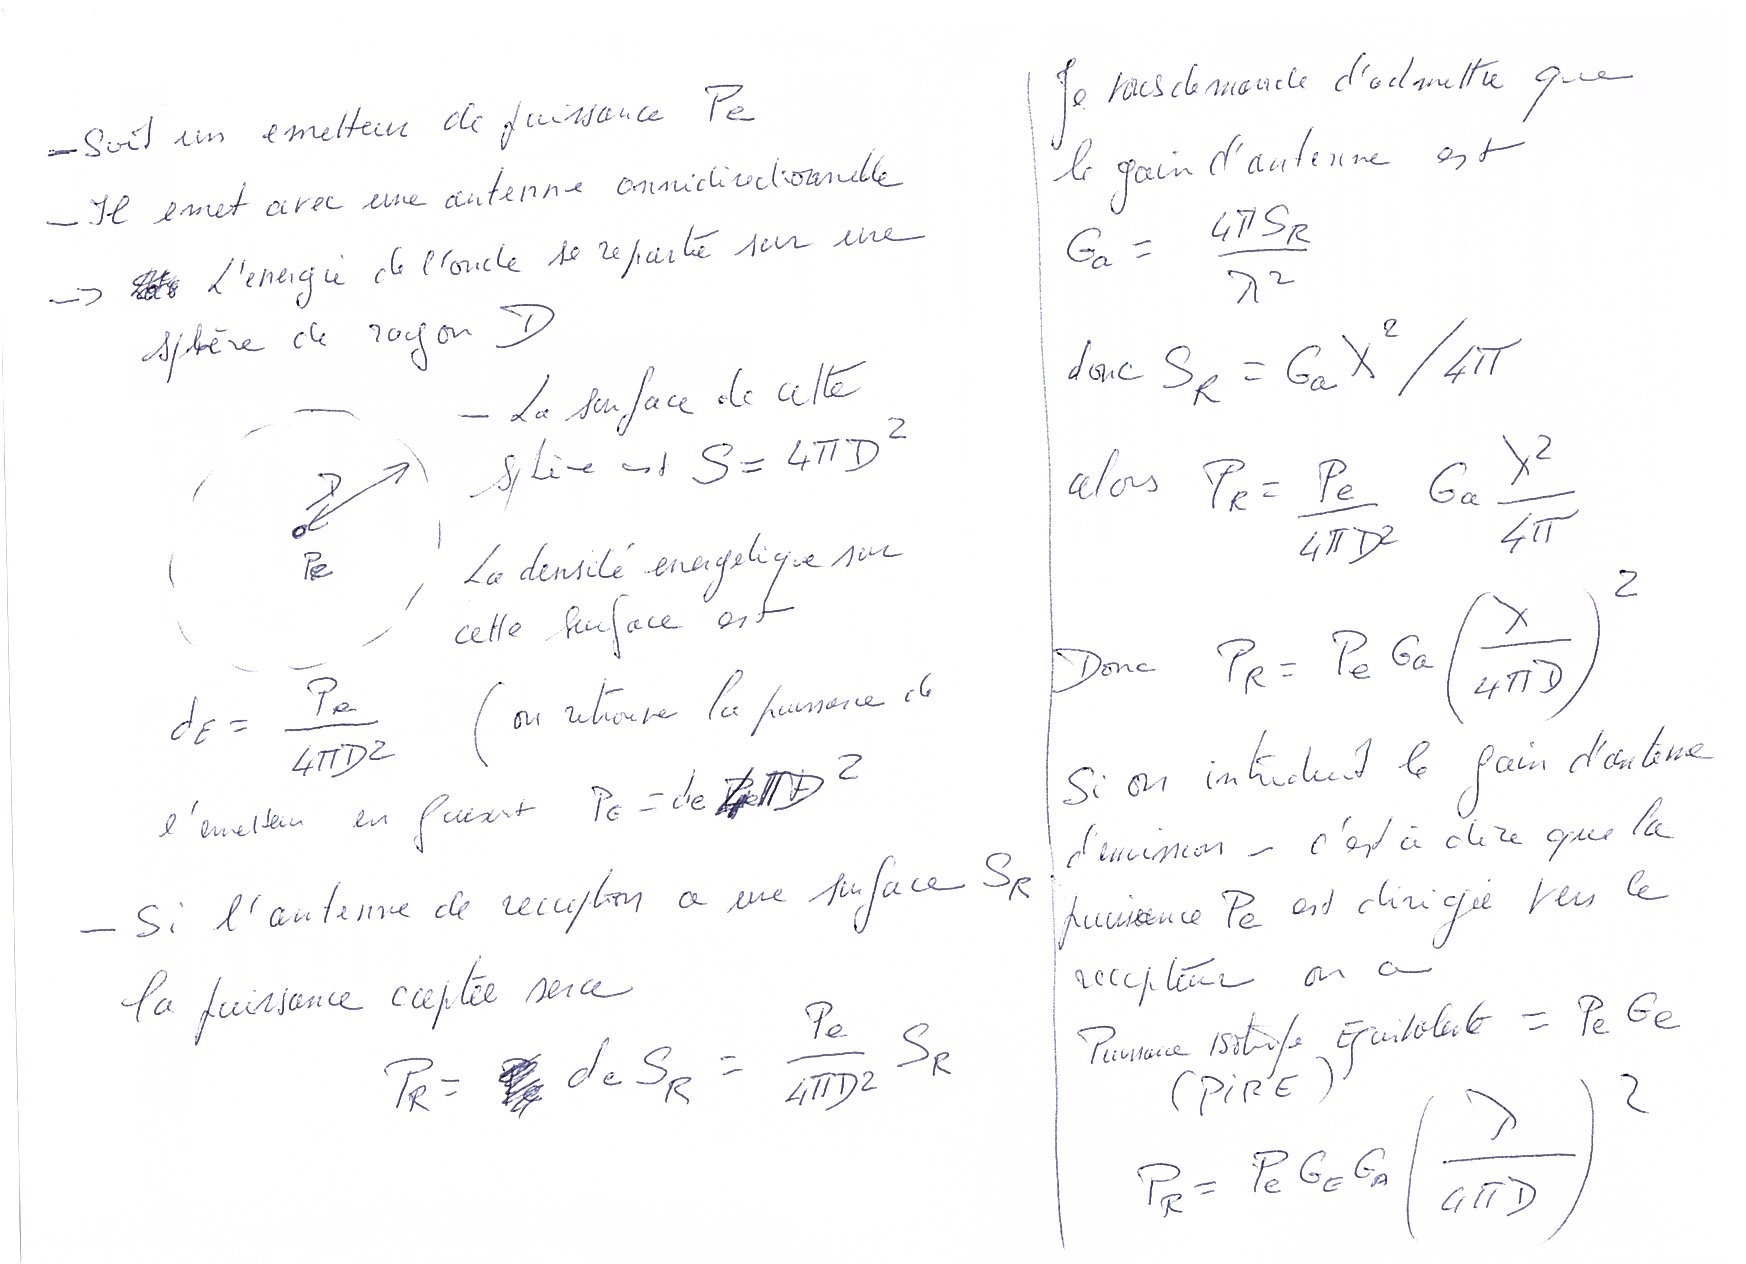 - Soit un emetteur de puissance Pe
- Il emet avec une antenne omnidirectionnelle
-> L'energie de l'onde se repartie sur une
sphère de rayon D
- La surface de cette
sphère est S = 4πD²
D
Pe
La densité energetique sur
cette surface est
dE = Pe / 4πD² (on retrouve la puissance de
l'emetteur en faisant PE = de 4πD²
- Si l'antenne de reception a une surface SR
la puissance captée sera
PR = de SR = Pe / 4πD² SR
Je vous demande d'admettre que
le gain d'antenne est
Ga = 4πSR / λ²
donc SR = Ga λ² / 4π
alors PR = Pe / 4πD² Ga λ² / 4π
Donc PR = Pe Ga (λ / 4πD)²
Si on introduit le gain d'antenne
d'emission - c'est à dire que la
puissance Pe est dirigée vers le
recepteur on a
Puissance Isotrope Equivalente = Pe Ge
(PIRE)
PR = Pe GE GA (λ / 4πD)²